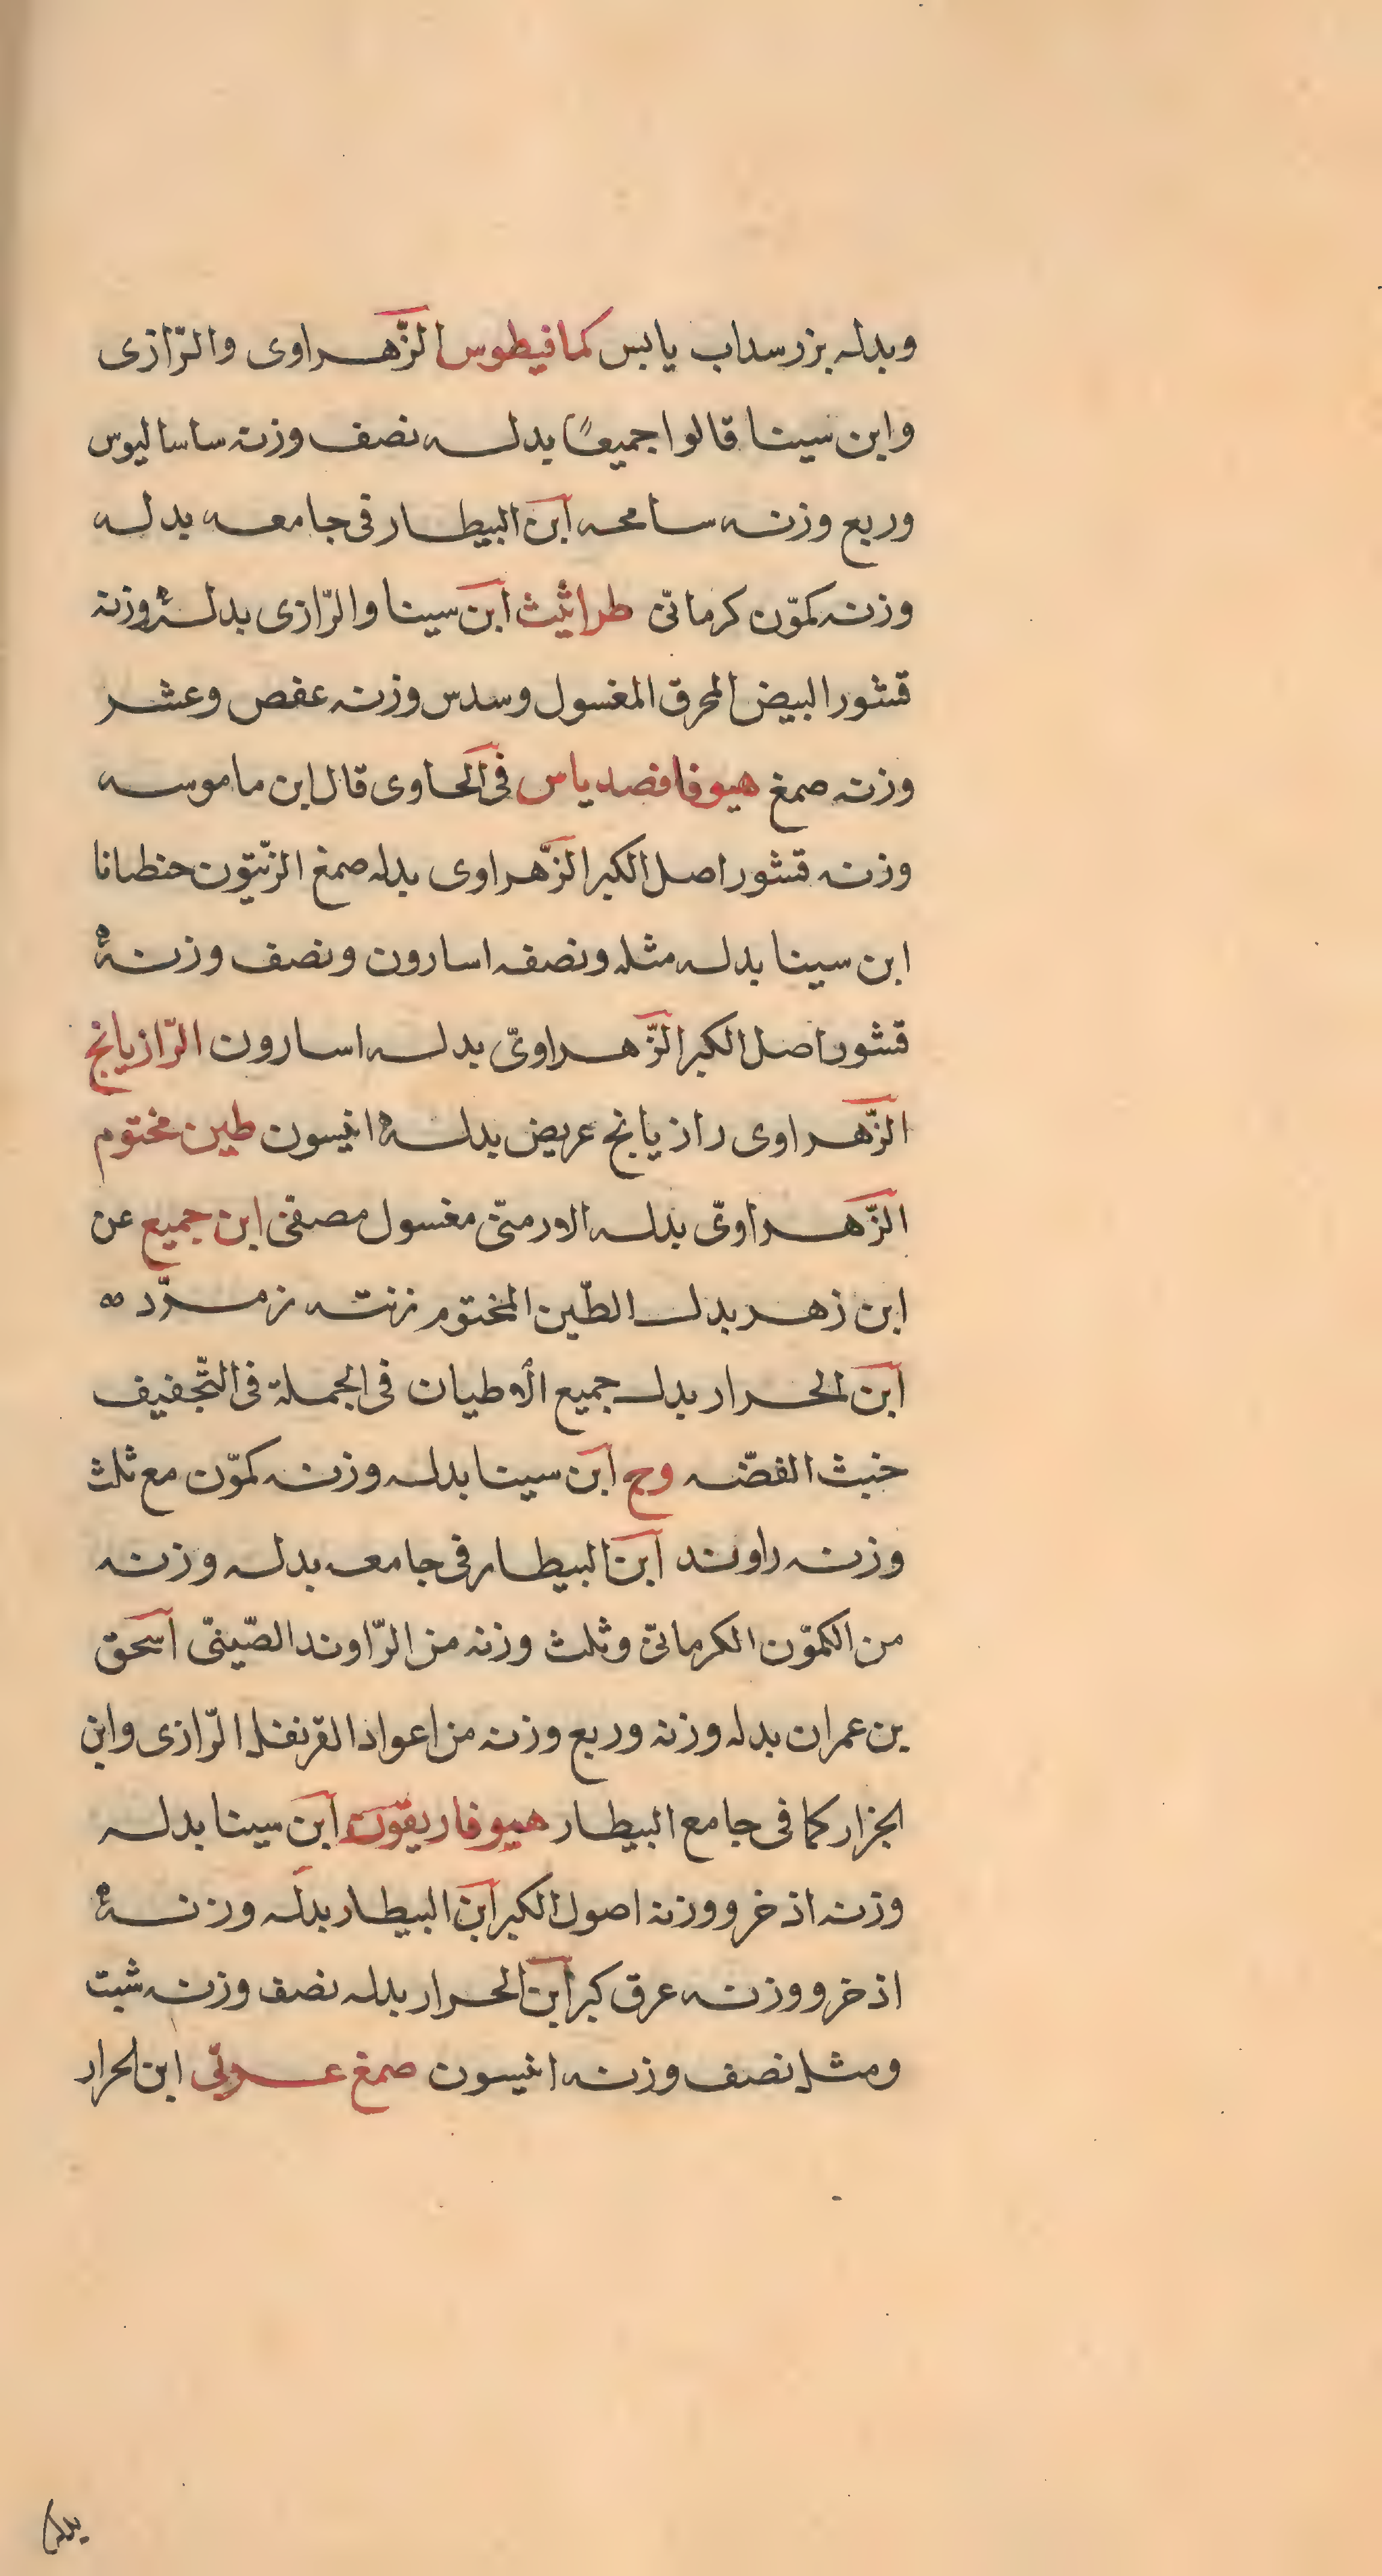 وبدله بزر سداب يابس كمافيطوس الزّهراوى والرّازى
وابن سينا قالوا جميعًا بدله نصف وزنه ساساليوس
وربع وزنه سامحه ابن البيطار فى جامعه بدله
وزنه كمّون كرمانى طراثيث ابن سينا والرّازى بدلهُ وزنه
قشور البيض المحرق المغسول وسدس وزنه عفص وعشر
وزنه صمغ هيوفافصدياس فى الحاوى قال ابن ماموسه
وزنه قشور اصل الكبر الزّهراوى بدله صمغ الزّيتون حنطانا
ابن سينا بدله مثله ونصفه اسارون ونصف وزنهُ
قشور اصل الكبر الزّهراوىّ بدله اسارون الرّازيانج
الزّهراوى رازيانج عريض بدلهُ انيسون طين مختوم
الزّهراوىّ بدله الارمنىّ مغسول مصفى ابن جميع عن
ابن زهر بدل الطّين المختوم زنته زمرّد
ابن الحرار بدل جميع الأطيان فى الجملة فى التّجفيف
خبث الفضّه وج ابن سينا بدله وزنه كمّون مع ثلث
وزنه راوند ابن البيطار فى جامعه بدله وزنه
من الكمّون الكرمانىّ وثلث وزنه من الرّاوند الصّينىّ اسحق
بن عمران بدله وزنه وربع وزنه من اعواد القرنفل الرّازى وابن
الجزار كما فى جامع البيطار هيوفاريقون ابن سينا بدله
وزنه اذخر ووزنه اصول الكبر ابن البيطار بدله وزنهُ
اذخر ووزنه عرق كبر ابن الحرار بدله نصف وزنه شبت
ومثل نصف وزنه انيسون صمغ عربىّ ابن الحرار
بدله